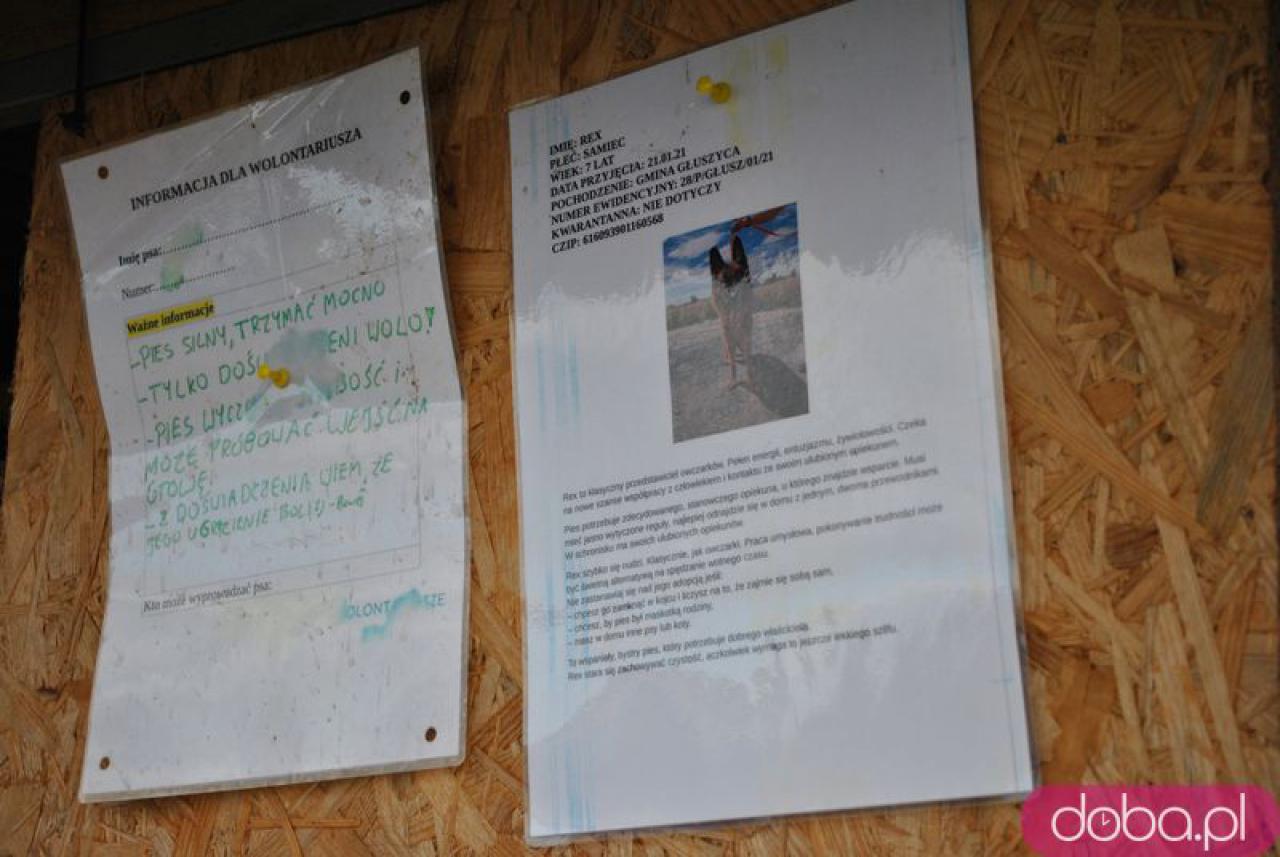 INFORMACJA DLA WOLONTARIUSZA
Imię psa:
Numer:
Ważne informacje
-PIES SILNY, TRZYMAĆ MOCNO
-TYLKO WOLO!
-PIES I
MOŻE PRÓBOWAĆ WEJŚĆ NA
GŁOWĘ
- Z DOŚWIADCZENIA WIEM, ŻE
JEGO UGRYZIENIE BOLI
Kto może wyprowadzać psa:
IMIĘ: REX
PŁEĆ: SAMIEC
WIEK: 7 LAT
DATA PRZYJĘCIA: 21.01.21
POCHODZENIE: GMINA GŁUSZYCA
NUMER EWIDENCYJNY: 28/P/GŁUSZ/01/21
KWARANTANNA: NIE DOTYCZY
CZIP: 616093901160568
Rex to klasyczny przedstawiciel owczarków. Pełen energii, entuzjazmu, żywiołowości. Czeka
na nowe szanse współpracy z człowiekiem i kontaktu ze swoim ulubionym opiekunem.
Pies potrzebuje zdecydowanego, stanowczego opiekuna, u którego znajdzie wsparcie. Musi
mieć jasno wytyczone reguły, najlepiej odnajdzie się w domu z jednym, dwoma przewodnikami.
W schronisku ma swoich ulubionych opiekunów.
Rex szybko się nudzi. Klasycznie, jak owczarki. Praca umysłowa, pokonywanie trudności może
być świetną alternatywą na spędzanie wolnego czasu.
Nie zastanawiaj się nad jego adopcją jeśli:
– chcesz go zamknąć w kojcu i liczysz na to, że zajmie się sobą sam,
– chcesz, by pies był maskotką rodziny,
– masz w domu inne psy lub koty.
To wspaniały, bystry pies, który potrzebuje dobrego właściciela.
Rex stara się zachowywać czystość, aczkolwiek wymaga to jeszcze lekkiego szlifu.
doba.pl